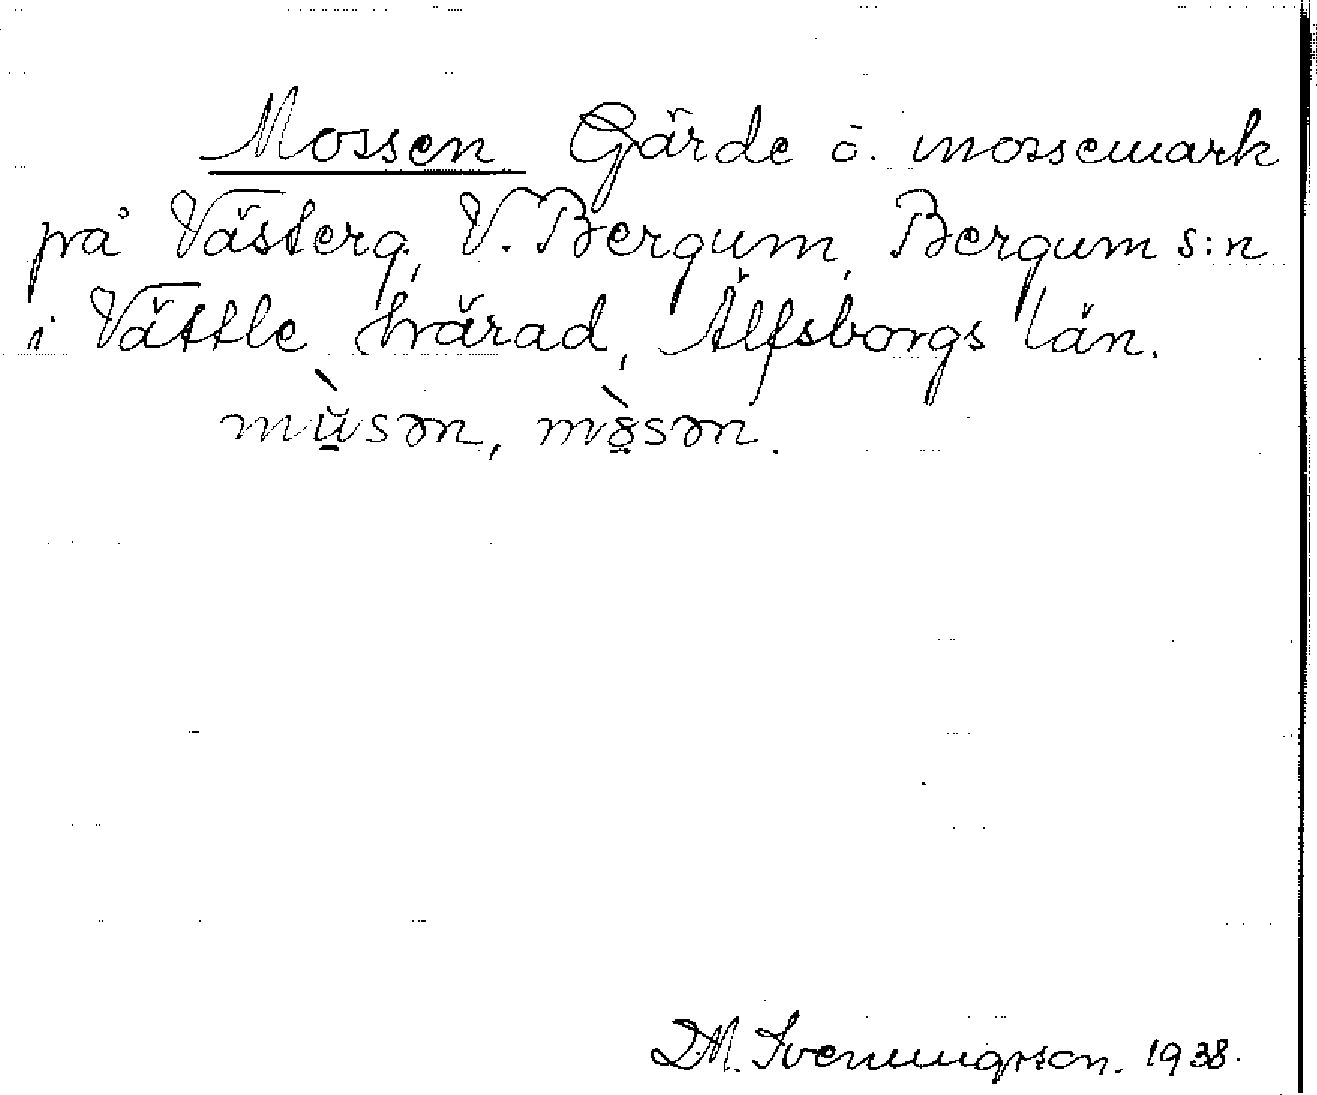 Mossen Gärde o. mossemark
på Västerg, V. Bergum, Bergum s:n
i Vättle härad, Älfsborgs län.
mùsən, mòsən.
D.M. Svenningsson. 1938.